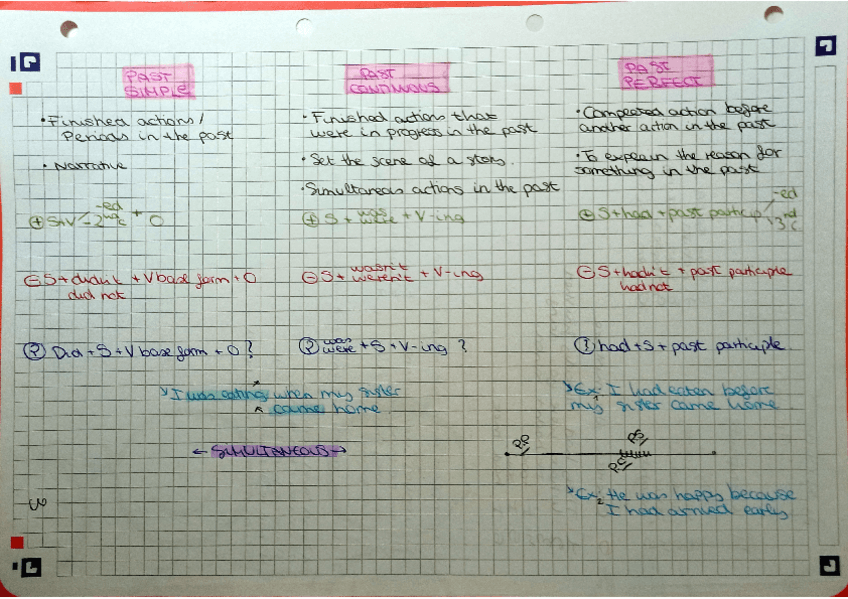 PAST
SIMPLE
• Finished actions /
Periods in the past
• Narrative
⊕ S+V -ed
2nd c + O
⊖ S + didn't + V base form + O
did not
? Did + S + V base form + O ?
PAST
CONTINUOUS
• Finished actions that
were in progress in the past
• Set the scene of a story.
• Simultaneous actions in the past
⊕ S + was
were + V-ing
⊖ S + wasn't
weren't + V-ing
? was
were + S + V-ing ?
I was eating when my sister
came home
← SIMULTANEOUS →
PAST
PERFECT
• Completed action before
another action in the past
• To explain the reason for
something in the past
⊕ S + had + past particip -ed
3rd c
⊖ S + hadn't + past participle
had not
? had + S + past participle.
Ex1 I had eaten before
my sister came home
PP PS
PC
Ex2 He was happy because
I had arrived early
3